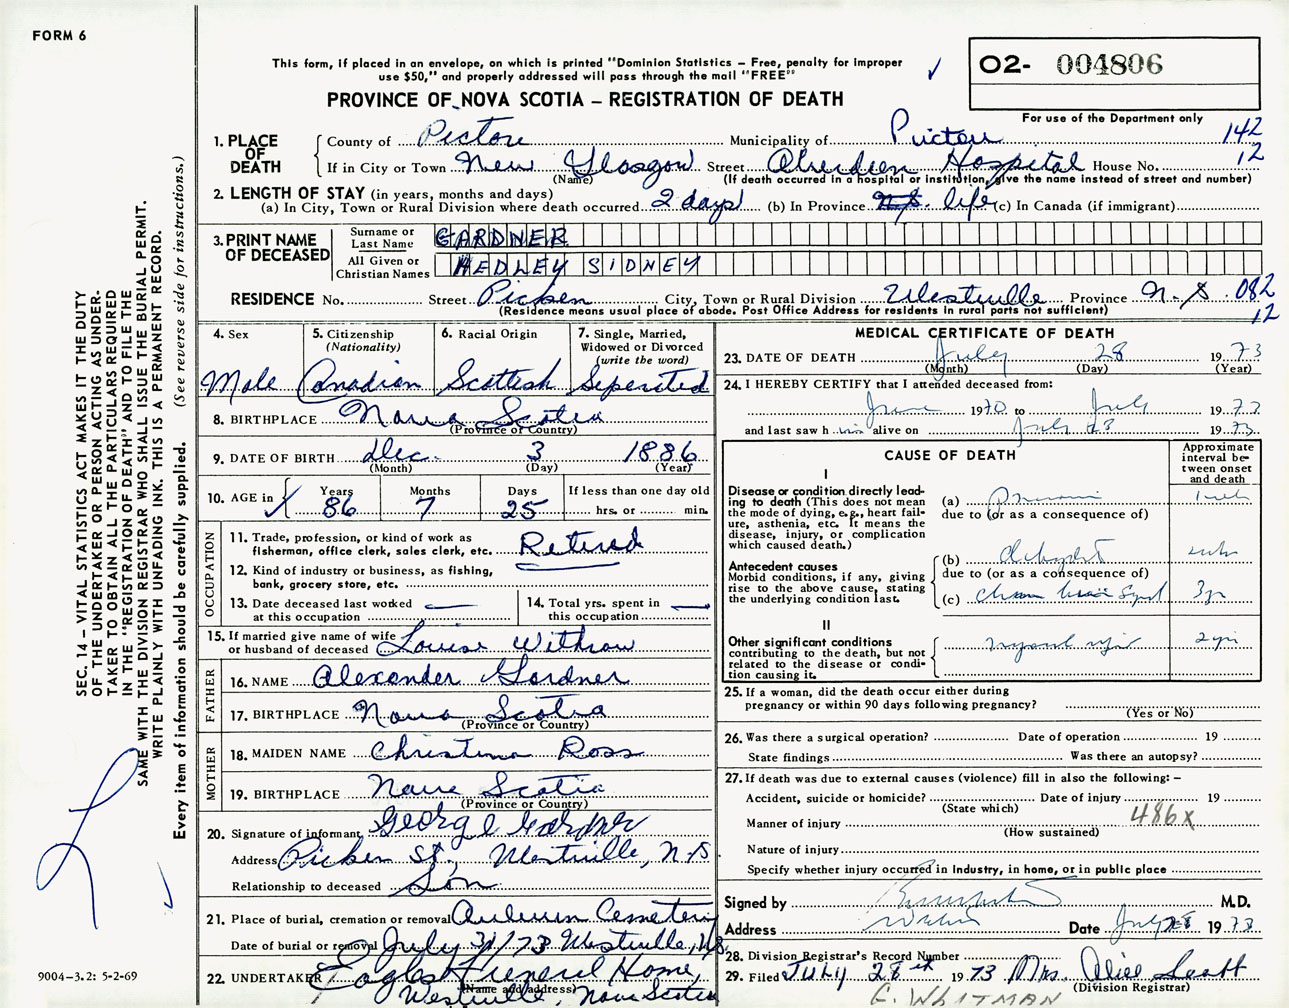 FORM 6
This form, if placed in an envelope, on which is printed "Dominion Statistics – Free, penalty for improper
use $50," and properly addressed will pass through the mail "FREE"
O2- 004806
PROVINCE OF NOVA SCOTIA – REGISTRATION OF DEATH
For use of the Department only
1. PLACE OF DEATH
County of Pictou Municipality of Pictou 142
If in City or Town New Glasgow Street Aberdeen Hospital House No. 12
(Name) (If death occurred in a hospital or institution, give the name instead of street and number)
2. LENGTH OF STAY (in years, months and days)
(a) In City, Town or Rural Division where death occurred 2 days (b) In Province N.S. life (c) In Canada (if immigrant)
3. PRINT NAME OF DECEASED
Surname or Last Name GARDNER
All Given or Christian Names HEDLEY SIDNEY
RESIDENCE No. Street Picken City, Town or Rural Division Westville Province N.S 082
(Residence means usual place of abode. Post Office Address for residents in rural parts not sufficient) 12
4. Sex
Male
5. Citizenship
(Nationality)
Canadian
6. Racial Origin
Scottish
7. Single, Married,
Widowed or Divorced
(write the word)
Seperated
8. BIRTHPLACE Nova Scotia
(Province or Country)
9. DATE OF BIRTH Dec. 3 1886
(Month) (Day) (Year)
10. AGE in
Years Months Days If less than one day old
86 7 25 hrs. or min.
OCCUPATION
11. Trade, profession, or kind of work as
fisherman, office clerk, sales clerk, etc. Retired
12. Kind of industry or business, as fishing,
bank, grocery store, etc.
13. Date deceased last worked
at this occupation
14. Total yrs. spent in
this occupation
15. If married give name of wife
or husband of deceased Louise Withrow
FATHER
16. NAME Alexander Gardner
17. BIRTHPLACE Nova Scotia
(Province or Country)
MOTHER
18. MAIDEN NAME Christina Ross
19. BIRTHPLACE Nova Scotia
(Province or Country)
20. Signature of informant George Gardner
Address Picken St., Westville, N.S
Relationship to deceased Son
21. Place of burial, cremation or removal Auburn Cemetery
Date of burial or removal July 31/73 Westville, N.S.
22. UNDERTAKER Eagles Funeral Home
(Name and address)
Westville, Nova Scotia
MEDICAL CERTIFICATE OF DEATH
23. DATE OF DEATH July 28 1973
(Month) (Day) (Year)
24. I HEREBY CERTIFY that I attended deceased from:
June 1970 to July 19
and last saw h im alive on July 28 1973
CAUSE OF DEATH
Approximate
interval be-
tween onset
and death
I
Disease or condition directly lead-
ing to death (This does not mean
the mode of dying, e.g., heart fail-
ure, asthenia, etc. It means the
disease, injury, or complication
which caused death.)
(a)
due to (or as a consequence of)
Antecedent causes
Morbid conditions, if any, giving
rise to the above cause, stating
the underlying condition last.
(b)
due to (or as a consequence of)
(c)
II
Other significant conditions
contributing to the death, but not
related to the disease or condi-
tion causing it.
25. If a woman, did the death occur either during
pregnancy or within 90 days following pregnancy?
(Yes or No)
26. Was there a surgical operation? Date of operation 19
State findings Was there an autopsy?
27. If death was due to external causes (violence) fill in also the following: –
Accident, suicide or homicide? Date of injury 19
(State which)
Manner of injury 486x
(How sustained)
Nature of injury
Specify whether injury occurred in Industry, in home, or in public place
Signed by M.D.
Address Date July 28 1973
28. Division Registrar's Record Number
29. Filed July 28th 1973 Mrs. Alice Scott
(Division Registrar)
E. WHITMAN
SEC. 14 – VITAL STATISTICS ACT MAKES IT THE DUTY
OF THE UNDERTAKER OR PERSON ACTING AS UNDER-
TAKER TO OBTAIN ALL THE PARTICULARS REQUIRED
IN THE "REGISTRATION OF DEATH" AND TO FILE THE
SAME WITH THE DIVISION REGISTRAR WHO SHALL ISSUE THE BURIAL PERMIT.
WRITE PLAINLY WITH UNFADING INK. THIS IS A PERMANENT RECORD.
Every item of information should be carefully supplied. (See reverse side for instructions.)
9004-3.2: 5-2-69